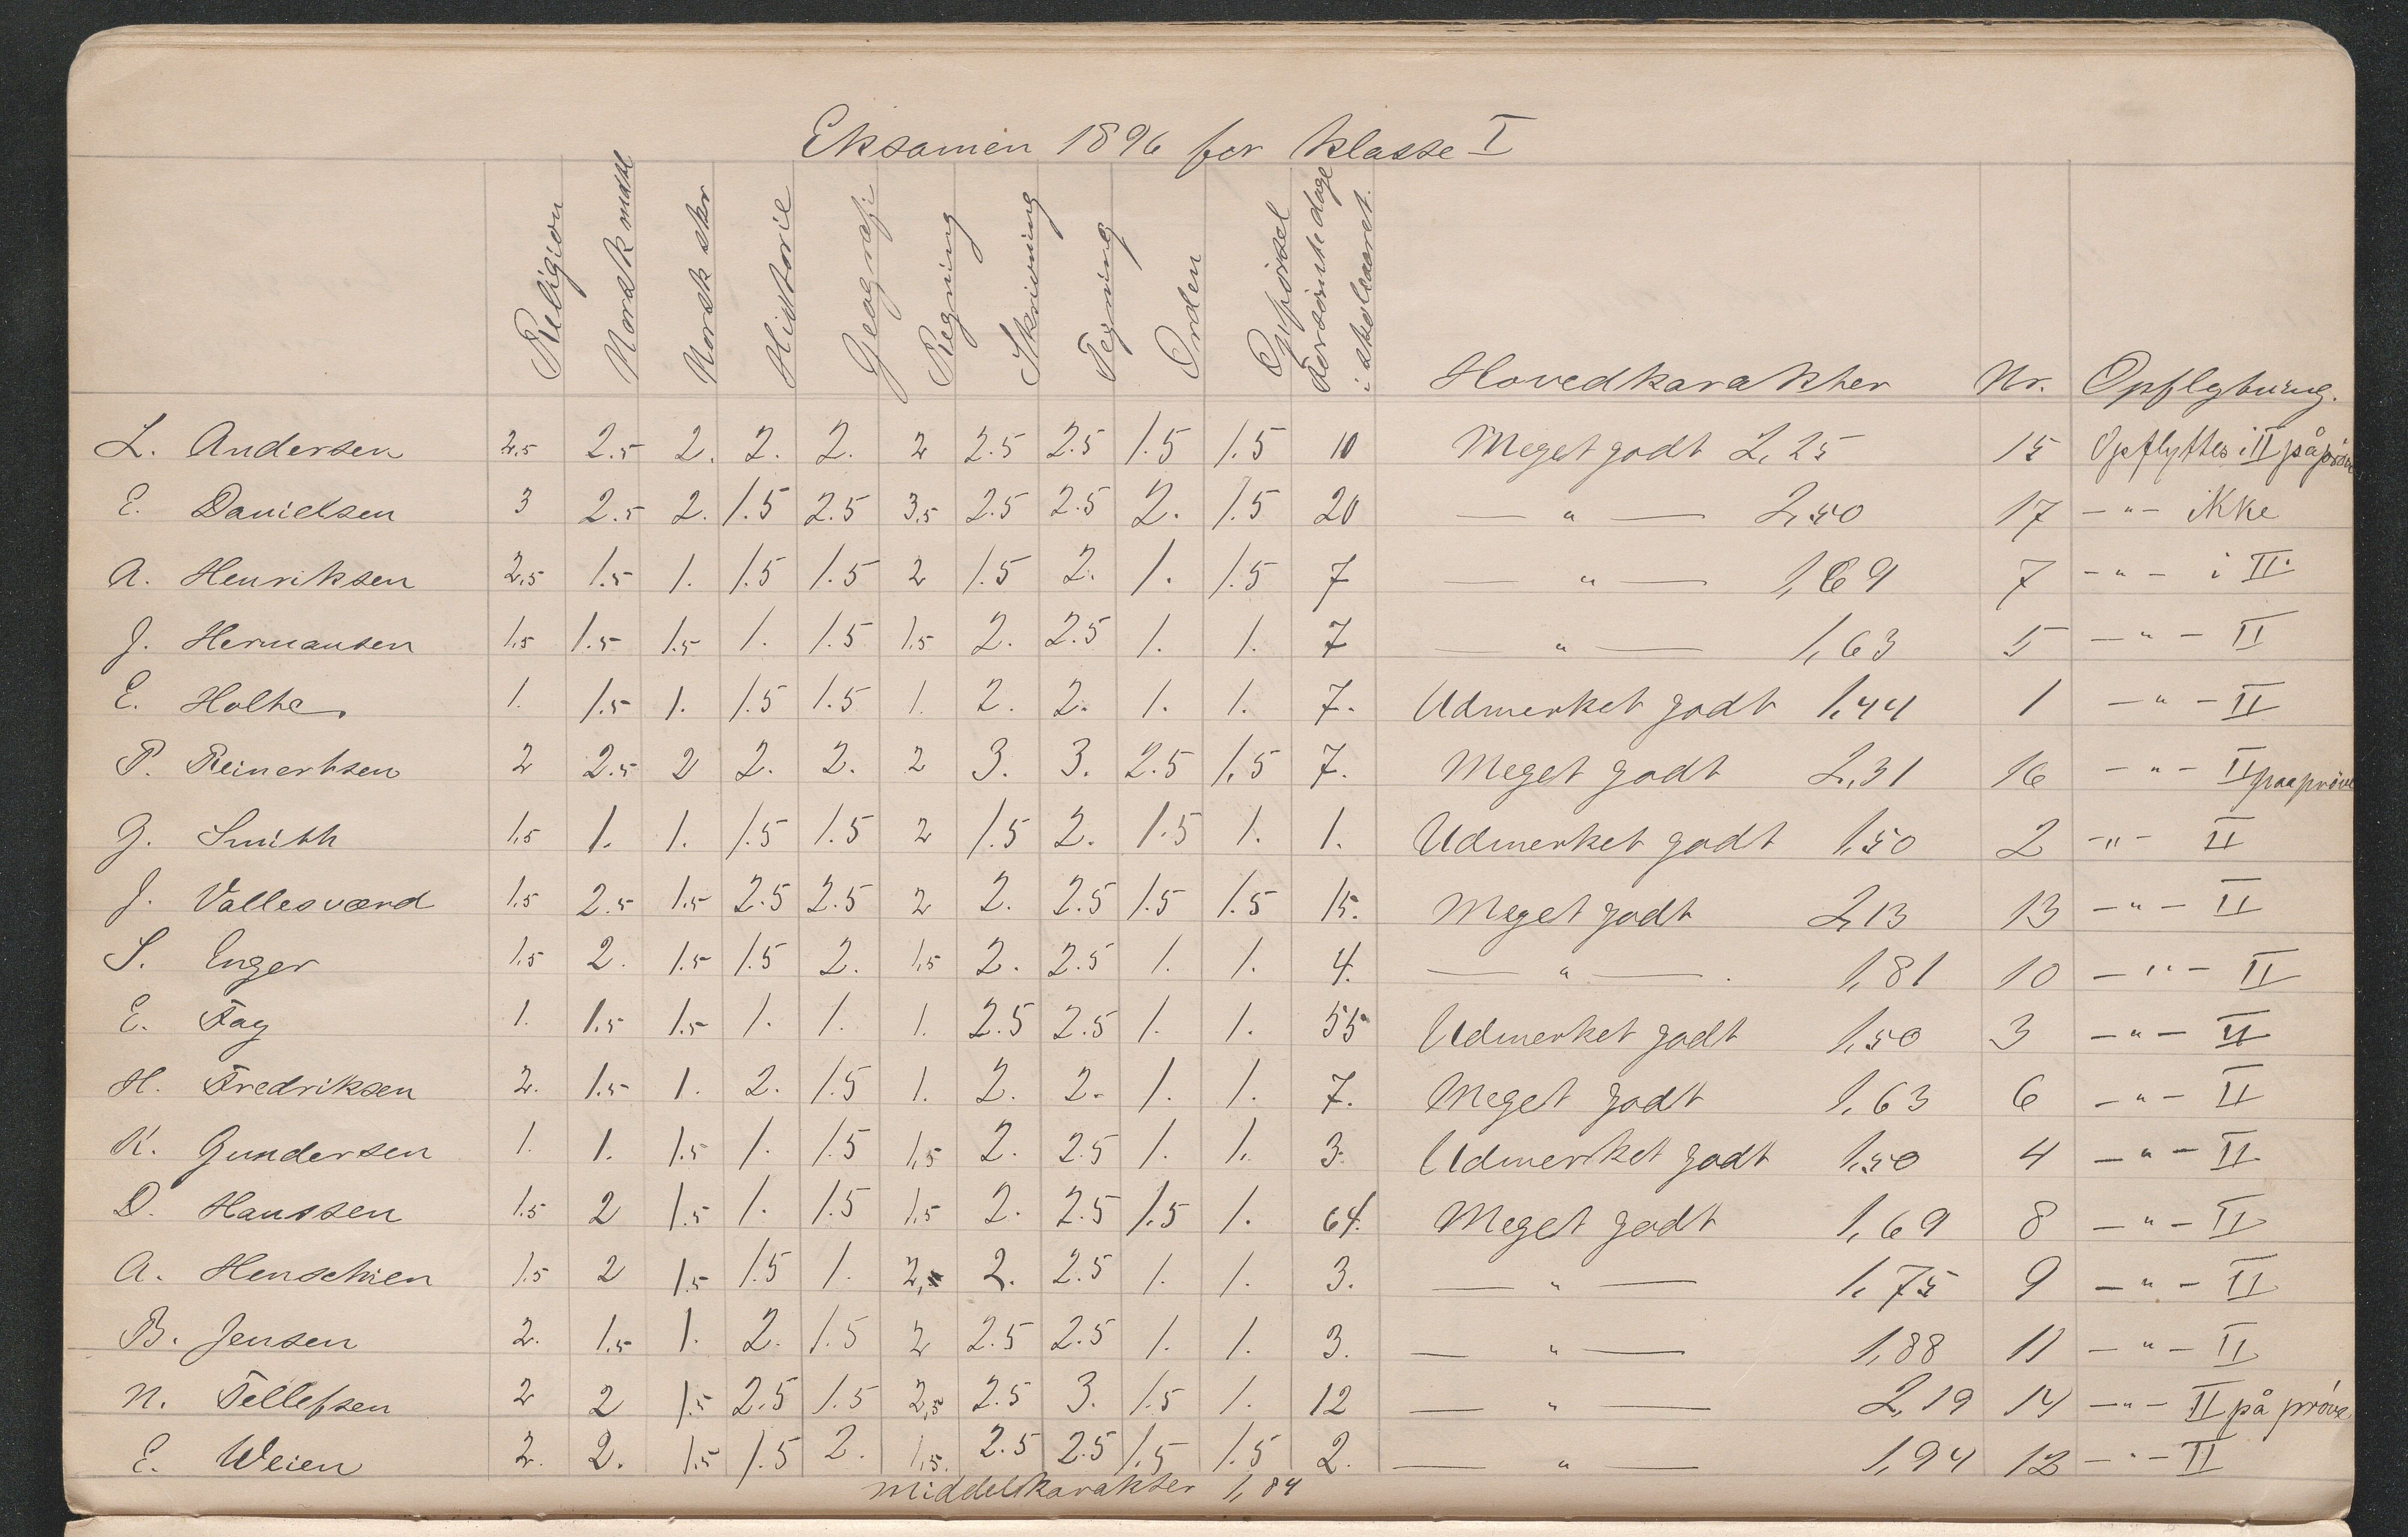 Eksamen 1896 for klasse I
Religion Norsk mdtl Norsk skr Historie Geografi Regning Skrivning Tegning Orden Opførsel Forsömte dage i skoleaaret. Hovedkarakter Nr. Opflytning.
L. Andersen 2,5 2.5 2. 2. 2. 2 2.5 2.5 1.5 1.5 10 Meget godt 2,25 15 Opflyttes i II på pröve
E. Danielsen 3 2.5 2. 1.5 2.5 3,5 2.5 2.5 2. 1.5 20 — " — 2,50 17 — " — ikke
A. Henriksen 2,5 1.5 1. 1.5 1.5 2 1.5 2. 1. 1.5 7 — " — 1,69 7 — " — i II.
J. Hermansen 1,5 1.5 1.5 1. 1.5 1,5 2. 2.5 1. 1. 7 — " — 1,63 5 — " — II
E. Holte 1. 1.5 1. 1.5 1.5 1. 2. 2. 1. 1. 7. Udmerket godt 1,44 1 — " — II
P. Reinertsen 2 2.5 2 2. 2. 2 3. 3. 2.5 1,5 7. Meget godt 2,31 16 — " — II paa prøve
G. Smith 1,5 1. 1. 1.5 1.5 2 1.5 2. 1.5 1. 1. Udmerket godt 1,50 2 — " — II
J. Vallesværd 1,5 2.5 1.5 2.5 2.5 2 2. 2.5 1.5 1.5 15. Meget godt 2,13 13 — " — II
S. Enger 1,5 2. 1.5 1.5 2. 1,5 2. 2.5 1. 1. 4. — " — 1,81 10 — " — II
E. Fay 1. 1.5 1.5 1. 1. 1. 2.5 2.5 1. 1. 55 Udmerket godt 1,50 3 — " — II
H. Fredriksen 2. 1.5 1. 2. 1.5 1. 2. 2. 1. 1. 7. Meget godt 1,63 6 — " — II
K. Gundersen 1. 1. 1.5 1. 1.5 1,5 2. 2.5 1. 1. 3. Udmerket godt 1,50 4 — " — II
D. Hanssen 1.5 2 1.5 1. 1.5 1,5 2. 2.5 1.5 1. 64. Meget godt 1,69 8 — " — II
A. Henschien 1.5 2 1.5 1.5 1. 2, 2. 2.5 1. 1. 3. — " — 1,75 9 — " — II
B. Jensen 2. 1.5 1. 2. 1.5 2 2.5 2.5 1. 1. 3. — " — 1,88 11 — " — II
N. Tellefsen 2 2 1.5 2.5 1.5 2,5 2.5 3. 1.5 1. 12 — " — 2,19 14 — " — II på pröve
E. Weien 2. 2. 1.5 1.5 2. 1,5. 2.5 2.5 1.5 1.5 2. — " — 1,94 12 — " — II
middelkarakter 1,84